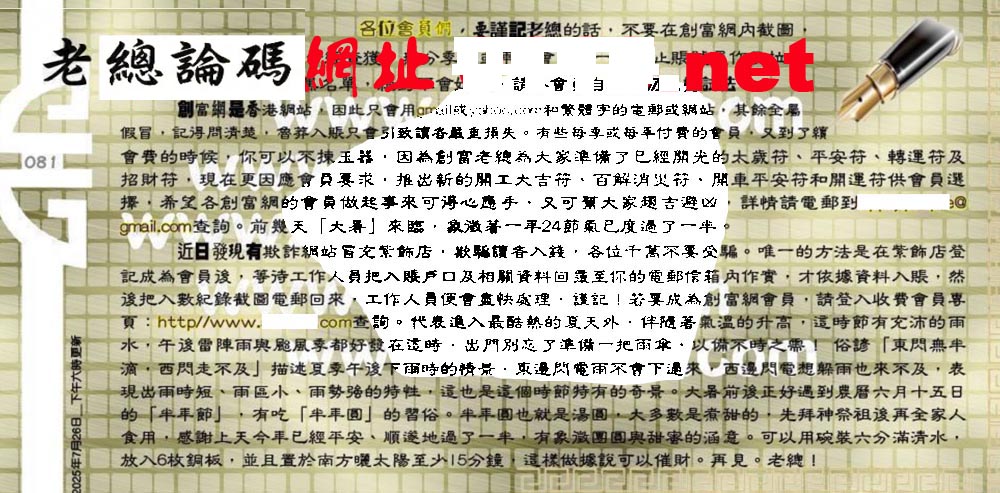 各位會員們，要謹記老總的話，不要在創富網內截圖，
老總論碼網址 .net
創富網是香港網站，因此只會用gmail或yahoo.com和繁體字的電郵或網站，其餘全屬
假冒，記得問清楚，魯莽入賬只會引致讀者嚴重損失。有些每季或每年付費的會員，又到了續
081
會費的時候，你可以不揀玉器，因為創富老總為大家準備了已經開光的太歲符、平安符、轉運符及
招財符，現在更因應會員要求，推出新的開工大吉符、百解消災符、開車平安符和開運符供會員選
擇，希望各創富網的會員做起事來可得心應手，又可幫大家趨吉避凶，詳情請電郵到 @
gmail.com查詢。前幾天「大暑」來臨，象徵著一年24節氣已度過了一半。
近日發現有欺詐網站冒充紫飾店，欺騙讀者入錢，各位千萬不要受騙。唯一的方法是在紫飾店登
記成為會員後，等待工作人員把入賬戶口及相關資料回覆至你的電郵信箱內作實，才依據資料入賬，然
後把入數紀錄截圖電郵回來，工作人員便會盡快處理，謹記！若要成為創富網會員，請登入收費會員專
頁：http//www. com查詢。代表進入最酷熱的夏天外，伴隨著氣溫的升高，這時節有充沛的雨
水，午後雷陣雨與颱風季都好發在這時，出門別忘了準備一把雨傘，以備不時之需！俗諺「東閃無半
滴，西閃走不及」描述夏季午後下雨時的情景，東邊閃電雨不會下過來，西邊閃電想躲雨也來不及，表
現出雨時短、雨區小、雨勢強的特性，這也是這個時節特有的奇景。大暑前後正好遇到農曆六月十五日
的「半年節」，有吃「半年圓」的習俗。半年圓也就是湯圓，大多數是煮甜的，先拜神祭祖後再全家人
食用，感謝上天今年已經平安、順遂地過了一半，有象徵團圓與甜蜜的涵意。可以用碗裝六分滿清水，
放入6枚銅板，並且置於南方曬太陽至少15分鐘，這樣做據說可以催財。再見。老總！
2025年7月26日__下午六時更新